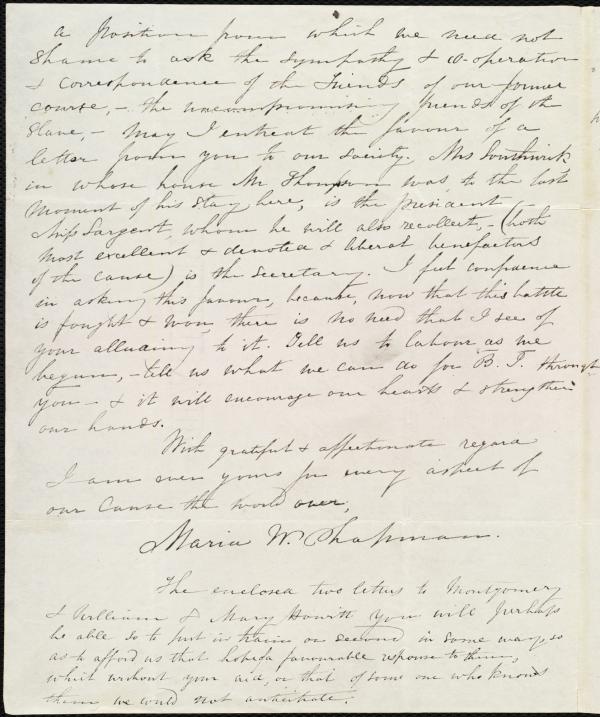 a position from which we need not
shame to ask the sympathy & co-operation
& correspondence of the Friends of our former
course, - the uncompromising friends of the
Slave, - may I entreat the favour of a
letter from you to our society. Mrs Southwick
in whose house Mr Thompson was, to the last
moment of his stay here, is the president
Miss Sargent, whom he will also recollect, - (both
most excellent & devoted & liberal benefactors
of the cause) is the Secretary. I feel confidence
in asking this favour, because, now that this battle
is fought & won there is no need that I see of
your alluding to it. Tell us to labour as we
begun, - tell us what we can do for B. I. through
you - & it will encourage our hearts & strengthen
our hands.
With grateful & affectionate regard
I am ever yours for every aspect of
our Cause the world over,
Maria W. Chapman.
The enclosed two letters to Montgomery
& William & Mary Howitt you will perhaps
be able so to put in train or second in some way, so
as to afford us that hoped a favourable response to them,
which without your aid, or that of some one who knows
them we could not anticipate.